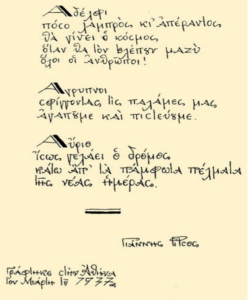 Ἀδελφὲ
πόσο λαμπρὸς κι' ἀπέραντος
θὰ γίνει ὁ κόσμος
ὅταν θὰ τὸν βλέπουν μαζὺ
ὅλοι οἱ ἄνθρωποι!
Ἄγρυπνοι
σφίγγοντας τὶς παλάμες μας
ἀγαποῦμε καὶ πιστεύουμε.
Αὔριο
ἴσως γελάει ὁ δρόμος
κάτω ἀπ' τὰ πάμφωτα πέλματα
τῆς νέας ἡμέρας.
ΓΙΑΝΝΗΣ ΡΙΤΣΟΣ
Γράφτηκε στὴν Ἀθήνα
τὸν Μάρτη τοῦ 1937